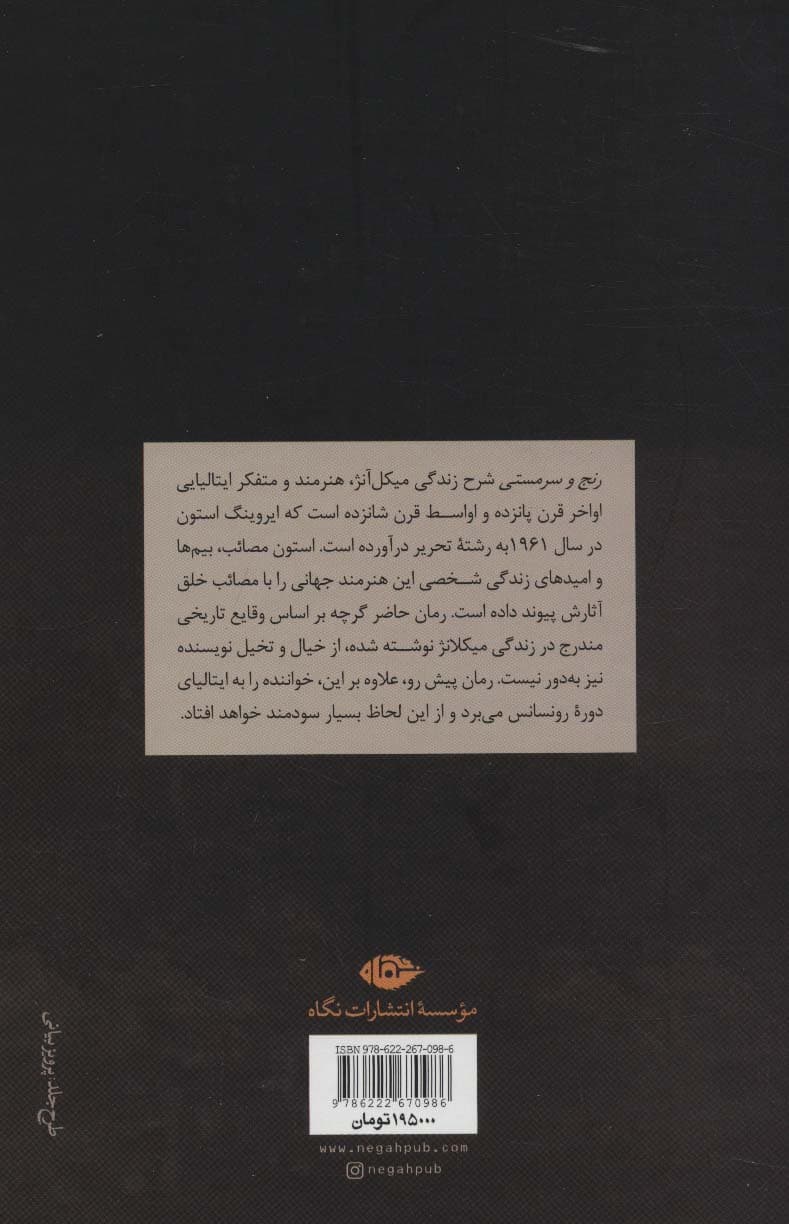 رنج و سرمستی شرح زندگی میکل‌آنژ، هنرمند و متفکر ایتالیایی
اواخر قرن پانزده و اواسط قرن شانزده است که ایروینگ استون
در سال ۱۹۶۱به رشتهٔ تحریر درآورده است. استون مصائب، بیم‌ها
و امیدهای زندگی شخصی این هنرمند جهانی را با مصائب خلق
آثارش پیوند داده است. رمان حاضر گرچه بر اساس وقایع تاریخی
مندرج در زندگی میکلانژ نوشته شده، از خیال و تخیل نویسنده
نیز به‌دور نیست. رمان پیش رو، علاوه بر این، خواننده را به ایتالیای
دورهٔ رونسانس می‌برد و از این لحاظ بسیار سودمند خواهد افتاد.
نگاه
مؤسسهٔ انتشارات نگاه
ISBN 978-622-267-098-6
9 786222 670986
۱۹۵۰۰۰تومان
www.negahpub.com
negahpub
طرح جلد: پرویز بیانی